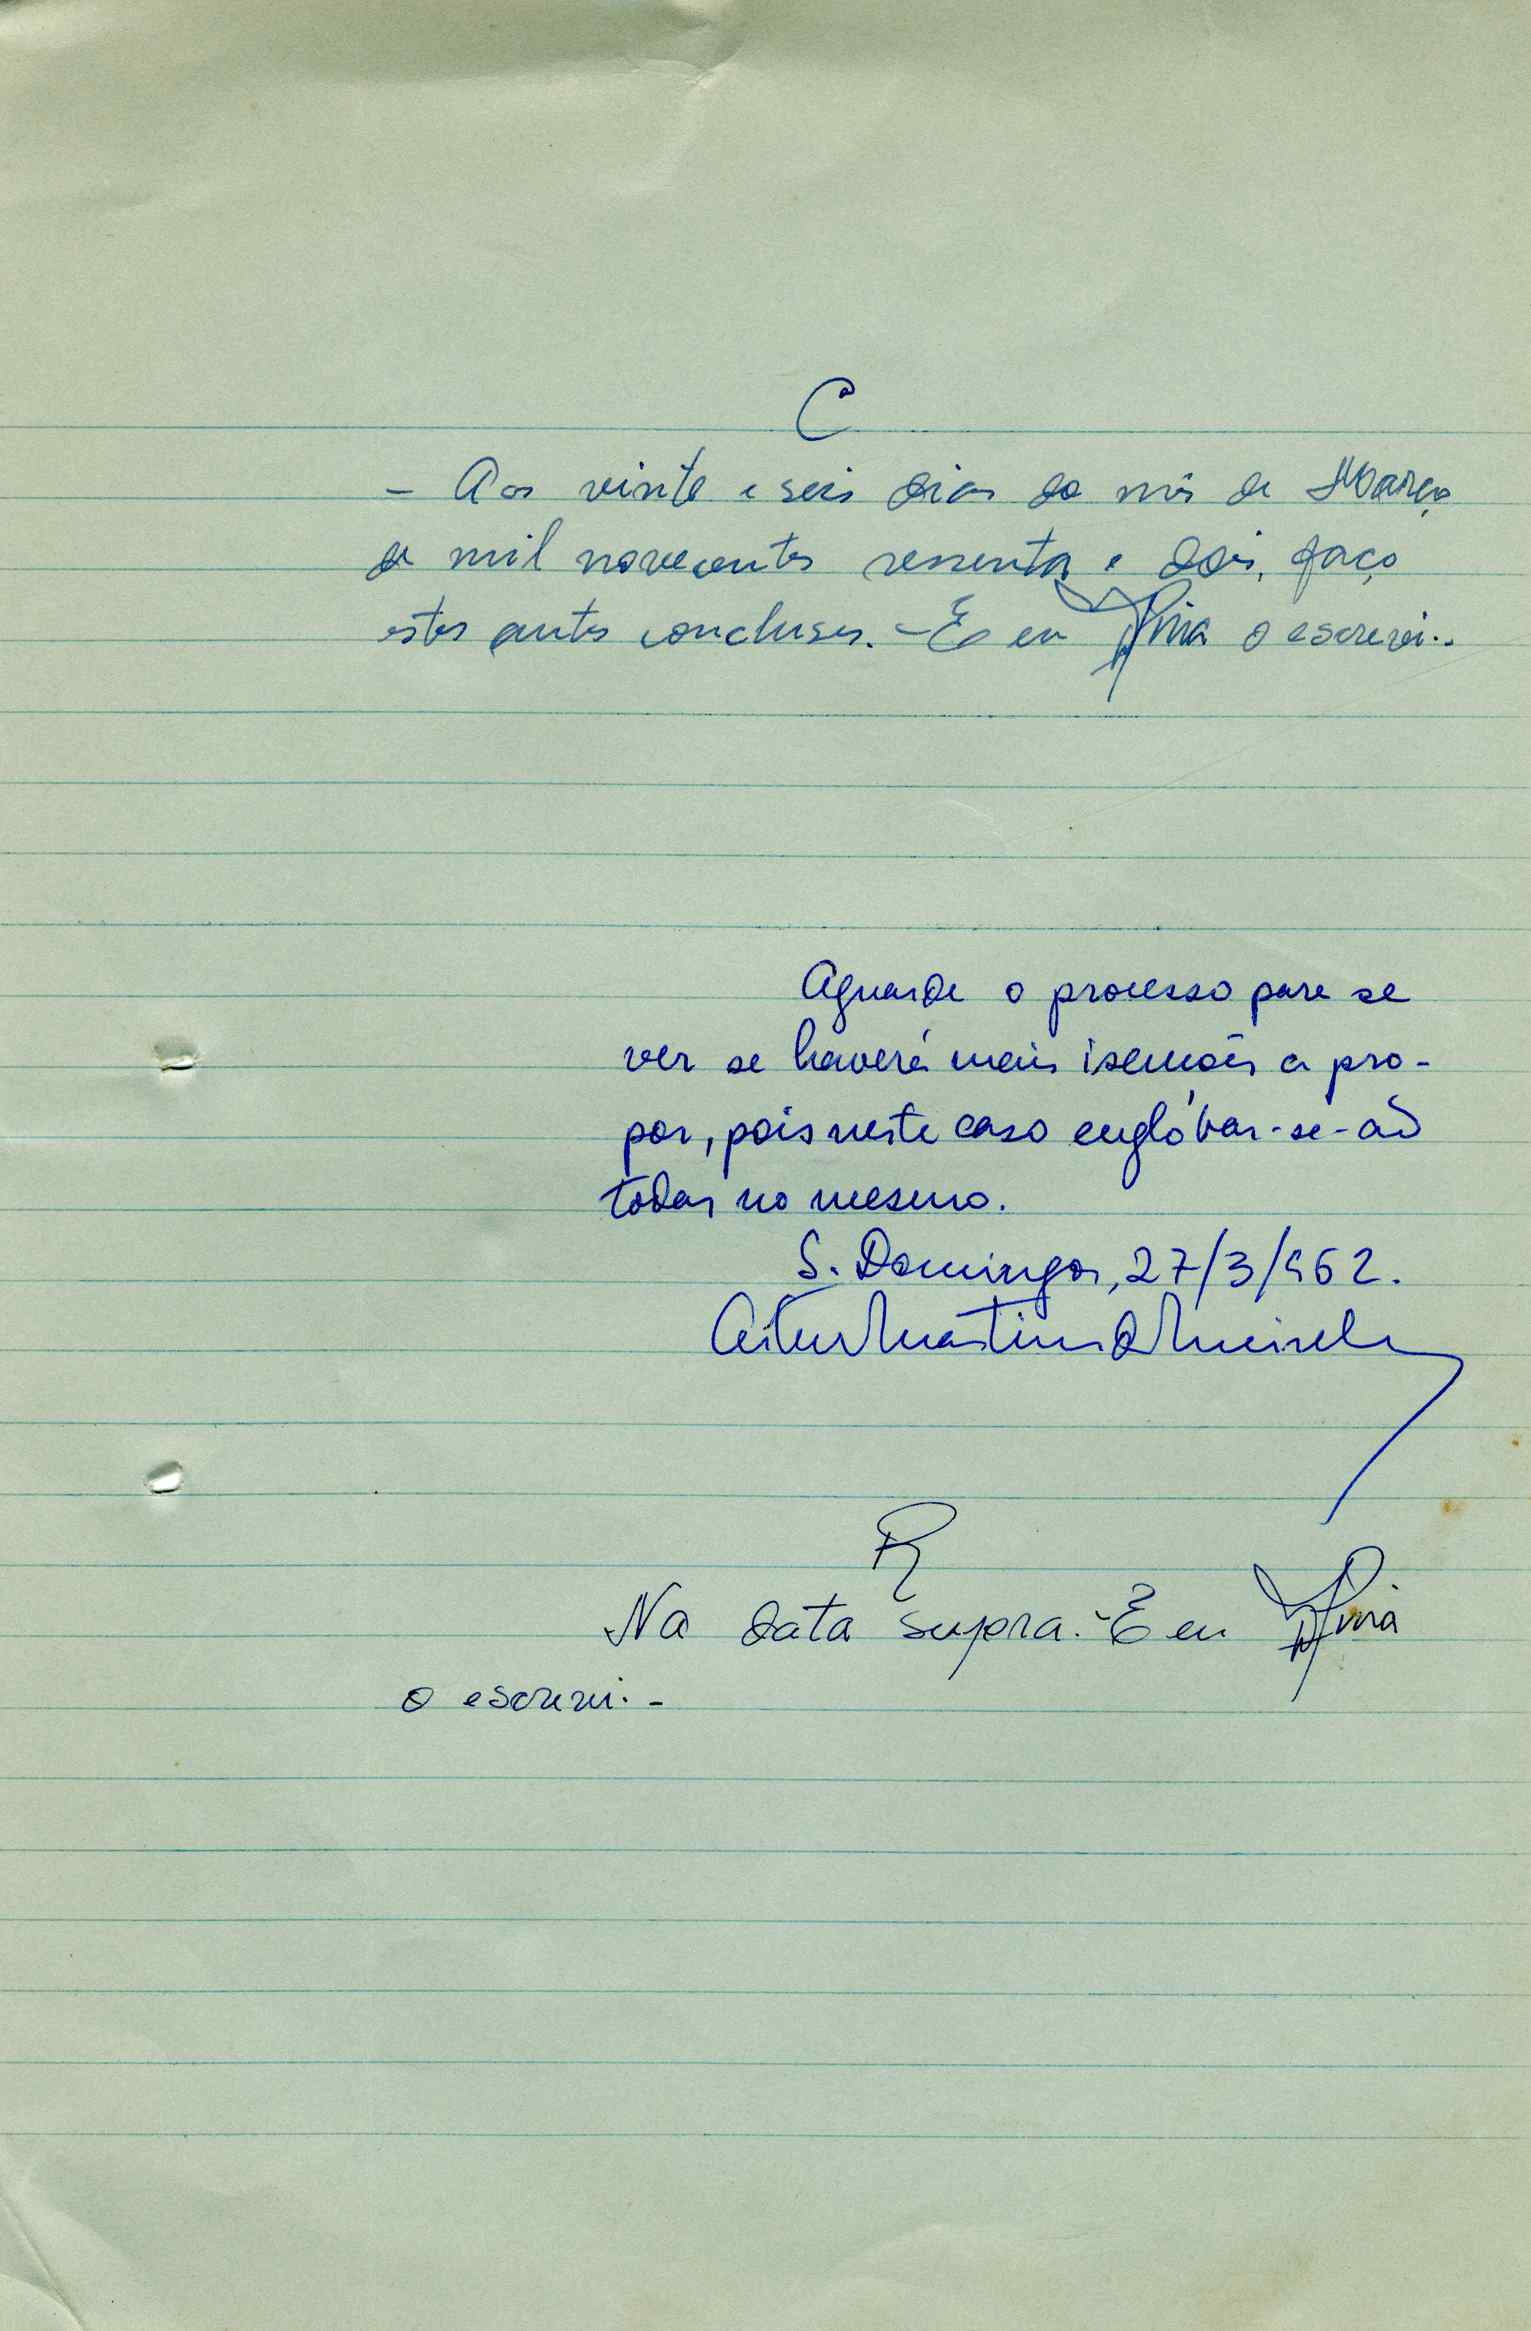 C
- Aos vinte e seis dias do mês de Março
de mil novecentos sessenta e dois, faço
estes autos conclusos. - E eu Pina o escrevi.-
Aguarde o processo para se
ver se haverá mais isenções a pro-
por, pois neste caso englobar-se-ão
todas no mesmo.
S. Domingos, 27/3/962.
R
Na data supra. - E eu Pina
o escrevi. -